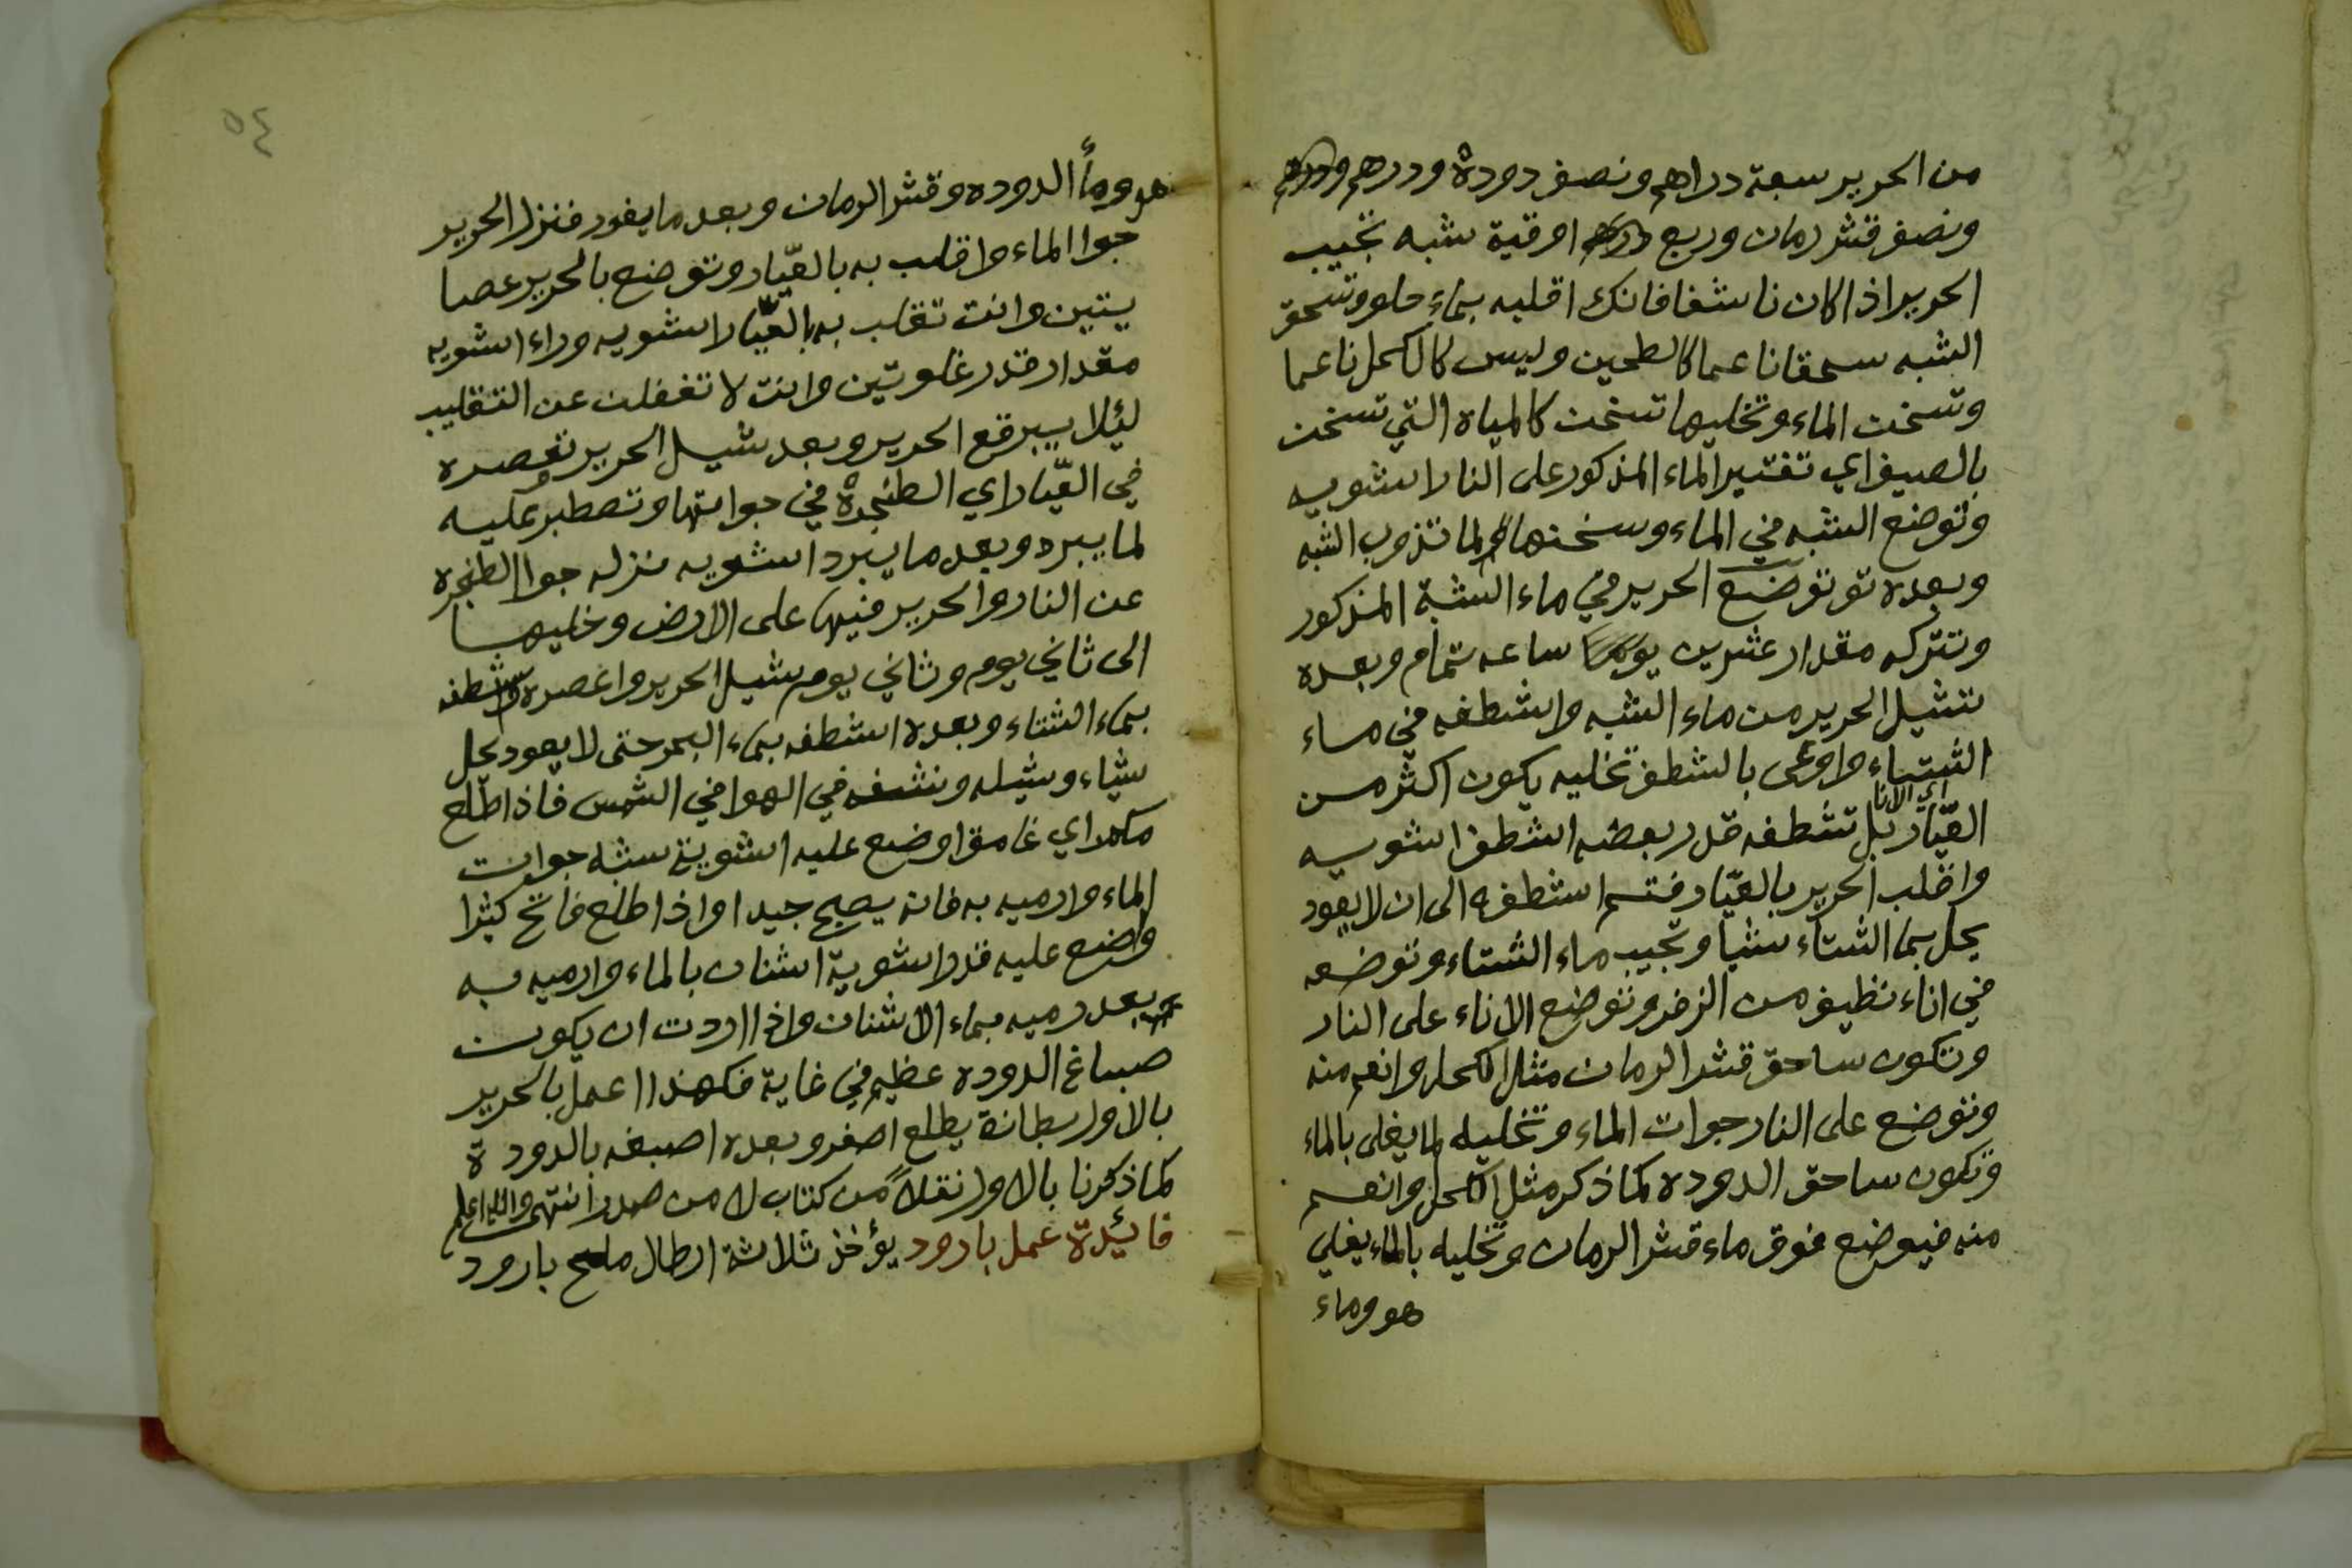 من الحرير سبعة دراهم ونصف دودة ودرهم
ونصف قشر رمان وربع اوقية شبه تجيب
الحرير اذا كان ناشفا فانك اقلبه بماء حلو وتسحق
الشبه سحقا ناعما كالطحين وليس كالكحل ناعما
وتسخن الماء وتخليها تسخن كالمياه التي تسخن
بالصيف اي تفتير الماء المذكور على النار اشويه
وتوضع الشبه في الماء وسخنها لما تذوب الشبه
وبعده توضع الحرير في ماء الشبة المذكور
وتتركه مقدار عشرين ساعه تمام وبعده
تشيل الحرير من ماء الشبه واشطفه في ماء
الشتاء واوعى بالشطف تخليه يكون اكثر من
اي الانا
العيّار بل تشطفه قدر بعضه اشطف اشويه
واقلب الحرير بالعيّار فتم اشطفه الى ان لا يعود
يحل بماء الشتاء شيا وتجيب ماء الشتاء وتوضعه
في اناء نظيف من الزفر وتوضع الاناء على النار
وتكون ساحق قشر الرمان مثل الكحل وانعم منه
وتوضع على النار جوات الماء وتخليه لما يغلي بالماء
وتكون ساحق الدوده كما ذكر مثل الكحل وانعم
منه فيوضع فوق ماء قشر الرمان وتخليه بالماء يغلي
هو وماء
٥٤
هو ومأ الدوده وقشر الرمان وبعد ما يفور فنزل الحرير
جوا الماء واقلب به بالعيّار وتوضع بالحرير عصا
يتين وانت تقلب به بالعيّار اشويه وراء اشويه
مقدار قدر غلوتين وانت لا تغفلن عن التقليب
لئلا يبرقع الحرير وبعد شيل الحرير تعصره
في العيّار اي الطنجرة في جواتها وتصطبر عليه
لما يبرد وبعد ما يبرد اشويه نزله جوا الطنجره
عن النار والحرير فيها على الارض وخليها
الى ثاني يوم وثاني يوم شيل الحرير واعصره واشطفه
بماء الشتاء وبعده اشطفه بماء البحر حتى لا يعود يحل
شياء وشيله ونشفه في الهوا في الشمس فاذا طلع
مكمدا اي غامقا وضع عليه اشوية شبه جوات
الماء وارميه به فانه يصح جيدا واذا طلع فاتح كثيرا
واضع عليه قدر اشوية اشنان بالماء وارميه به
بعد رميه بماء الاشنان واذا اردت ان يكون
صباغ الدوده عظيم في غاية فكهذا اعمل بالحرير
بالاول بطانة يطلع اصفر وبعده اصبغه بالدودة
كما ذكرنا بالاول نقلاً من كتاب لا من صدر انتهى والله اعلم
فائيدة عمل بارود يؤخذ ثلاثة ارطال ملح بارود